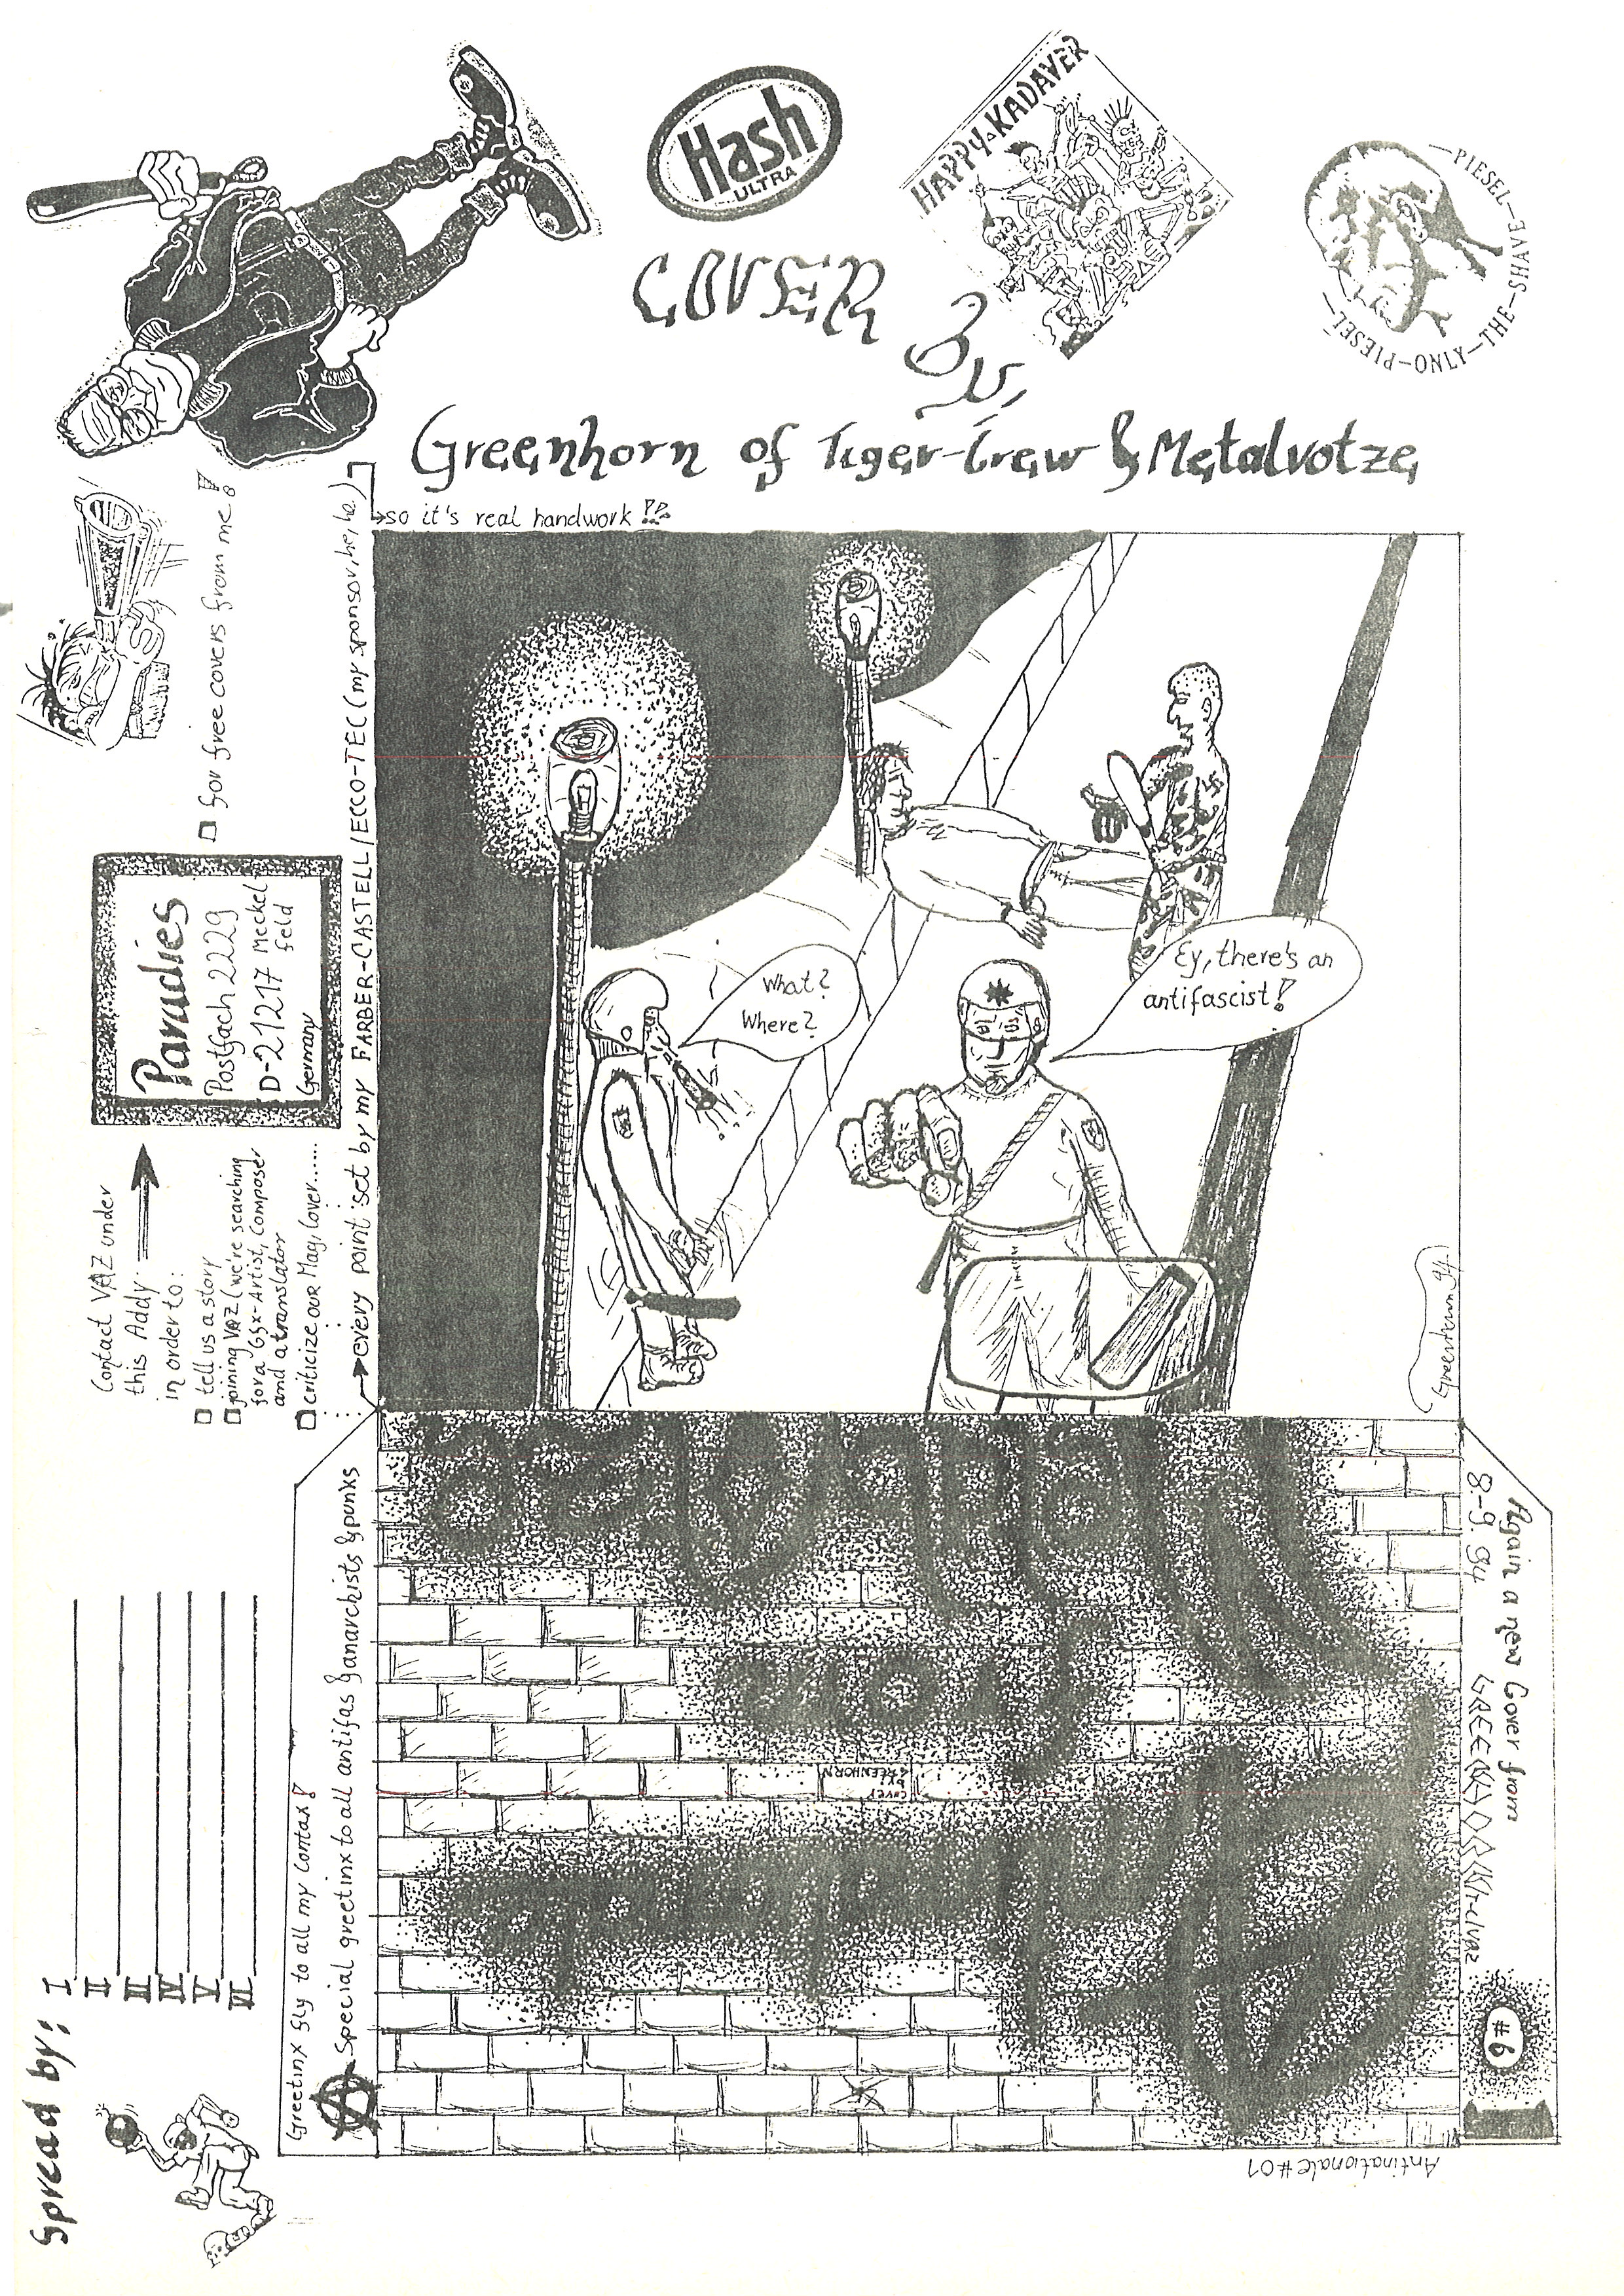 Hash
ULTRA
HAPPY KADAVER
—PIESEL—
PIESEL—ONLY—THE—SHAVE
COVER
By
Greenhorn of Tiger-Crew & Metalvotze
so it's real handwork !?
every point set by my FARBER-CASTELL/ECCO-TEC (my sponsor, he, he)
for free covers from me!
Contact VAZ under
this Addy
in order to:
tell us a story
joining VAZ (we're searching
for a Gfx-Artist, Composer
and a translator
criticize our Mag, Cover......
Paradies
Postfach 2229
D-21217 Meckel
feld
Germany
What?
Where?
Ey, there's an
antifascist!
Greenhorn 94
Greetinx fly to all my contax!
Special greetinx to all antifas & anarchists & ponks
Again a new Cover from
8.-9. 94
#6
GREENHORN
cover
Antinationale #01
Spread by:
I
II
III
IV
V
VI